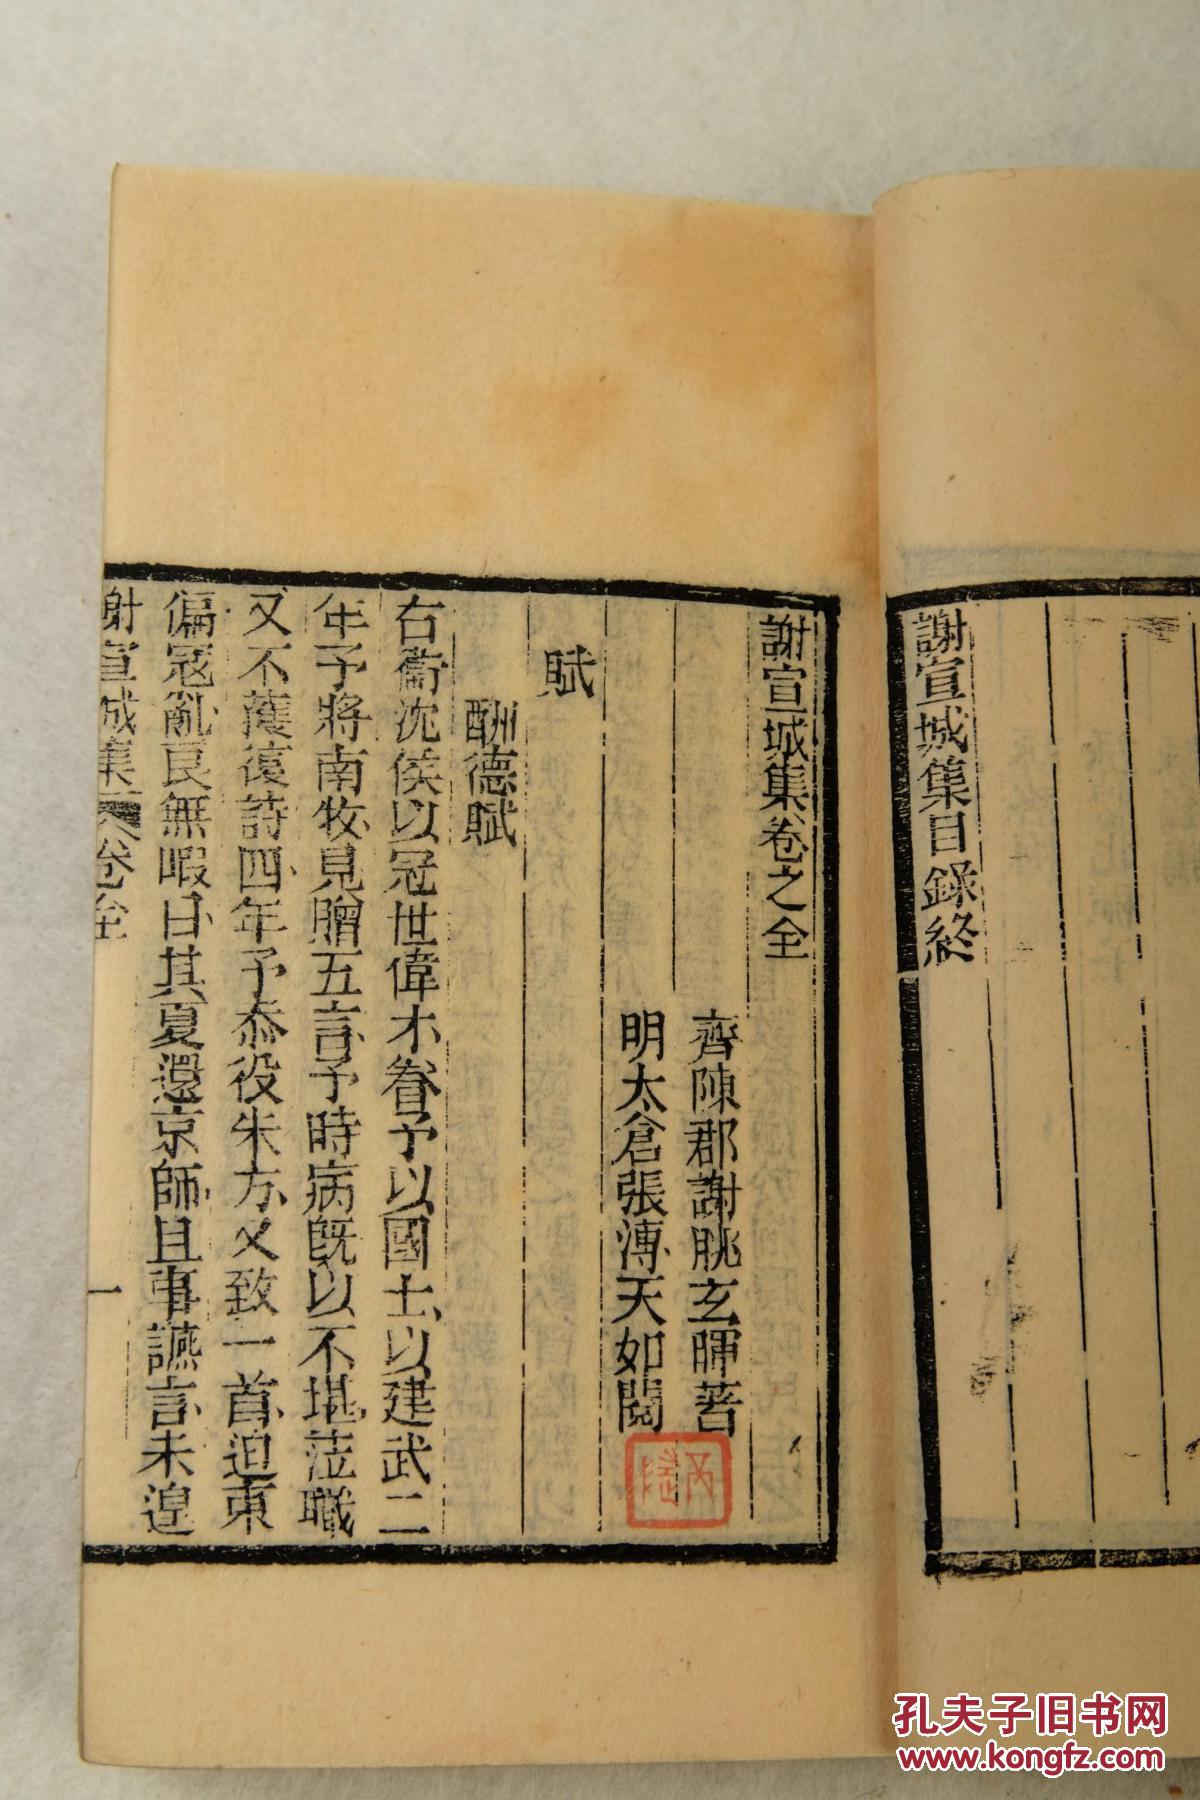 謝宣城集目錄終
謝宣城集卷之全
齊陳郡謝朓玄暉著
明太倉張溥天如閱
賦
酬德賦
右衞沈侯以冠世偉木眷予以國士以建武二
年予將南牧見贈五言予時病既以不堪蒞職
又不獲復詩四年予忝役朱方又致一首迫東
偏寇亂良無暇日其夏還京師且事讌言未遑
謝宣城集 卷全
一
孔夫子旧书网
www.kongfz.com